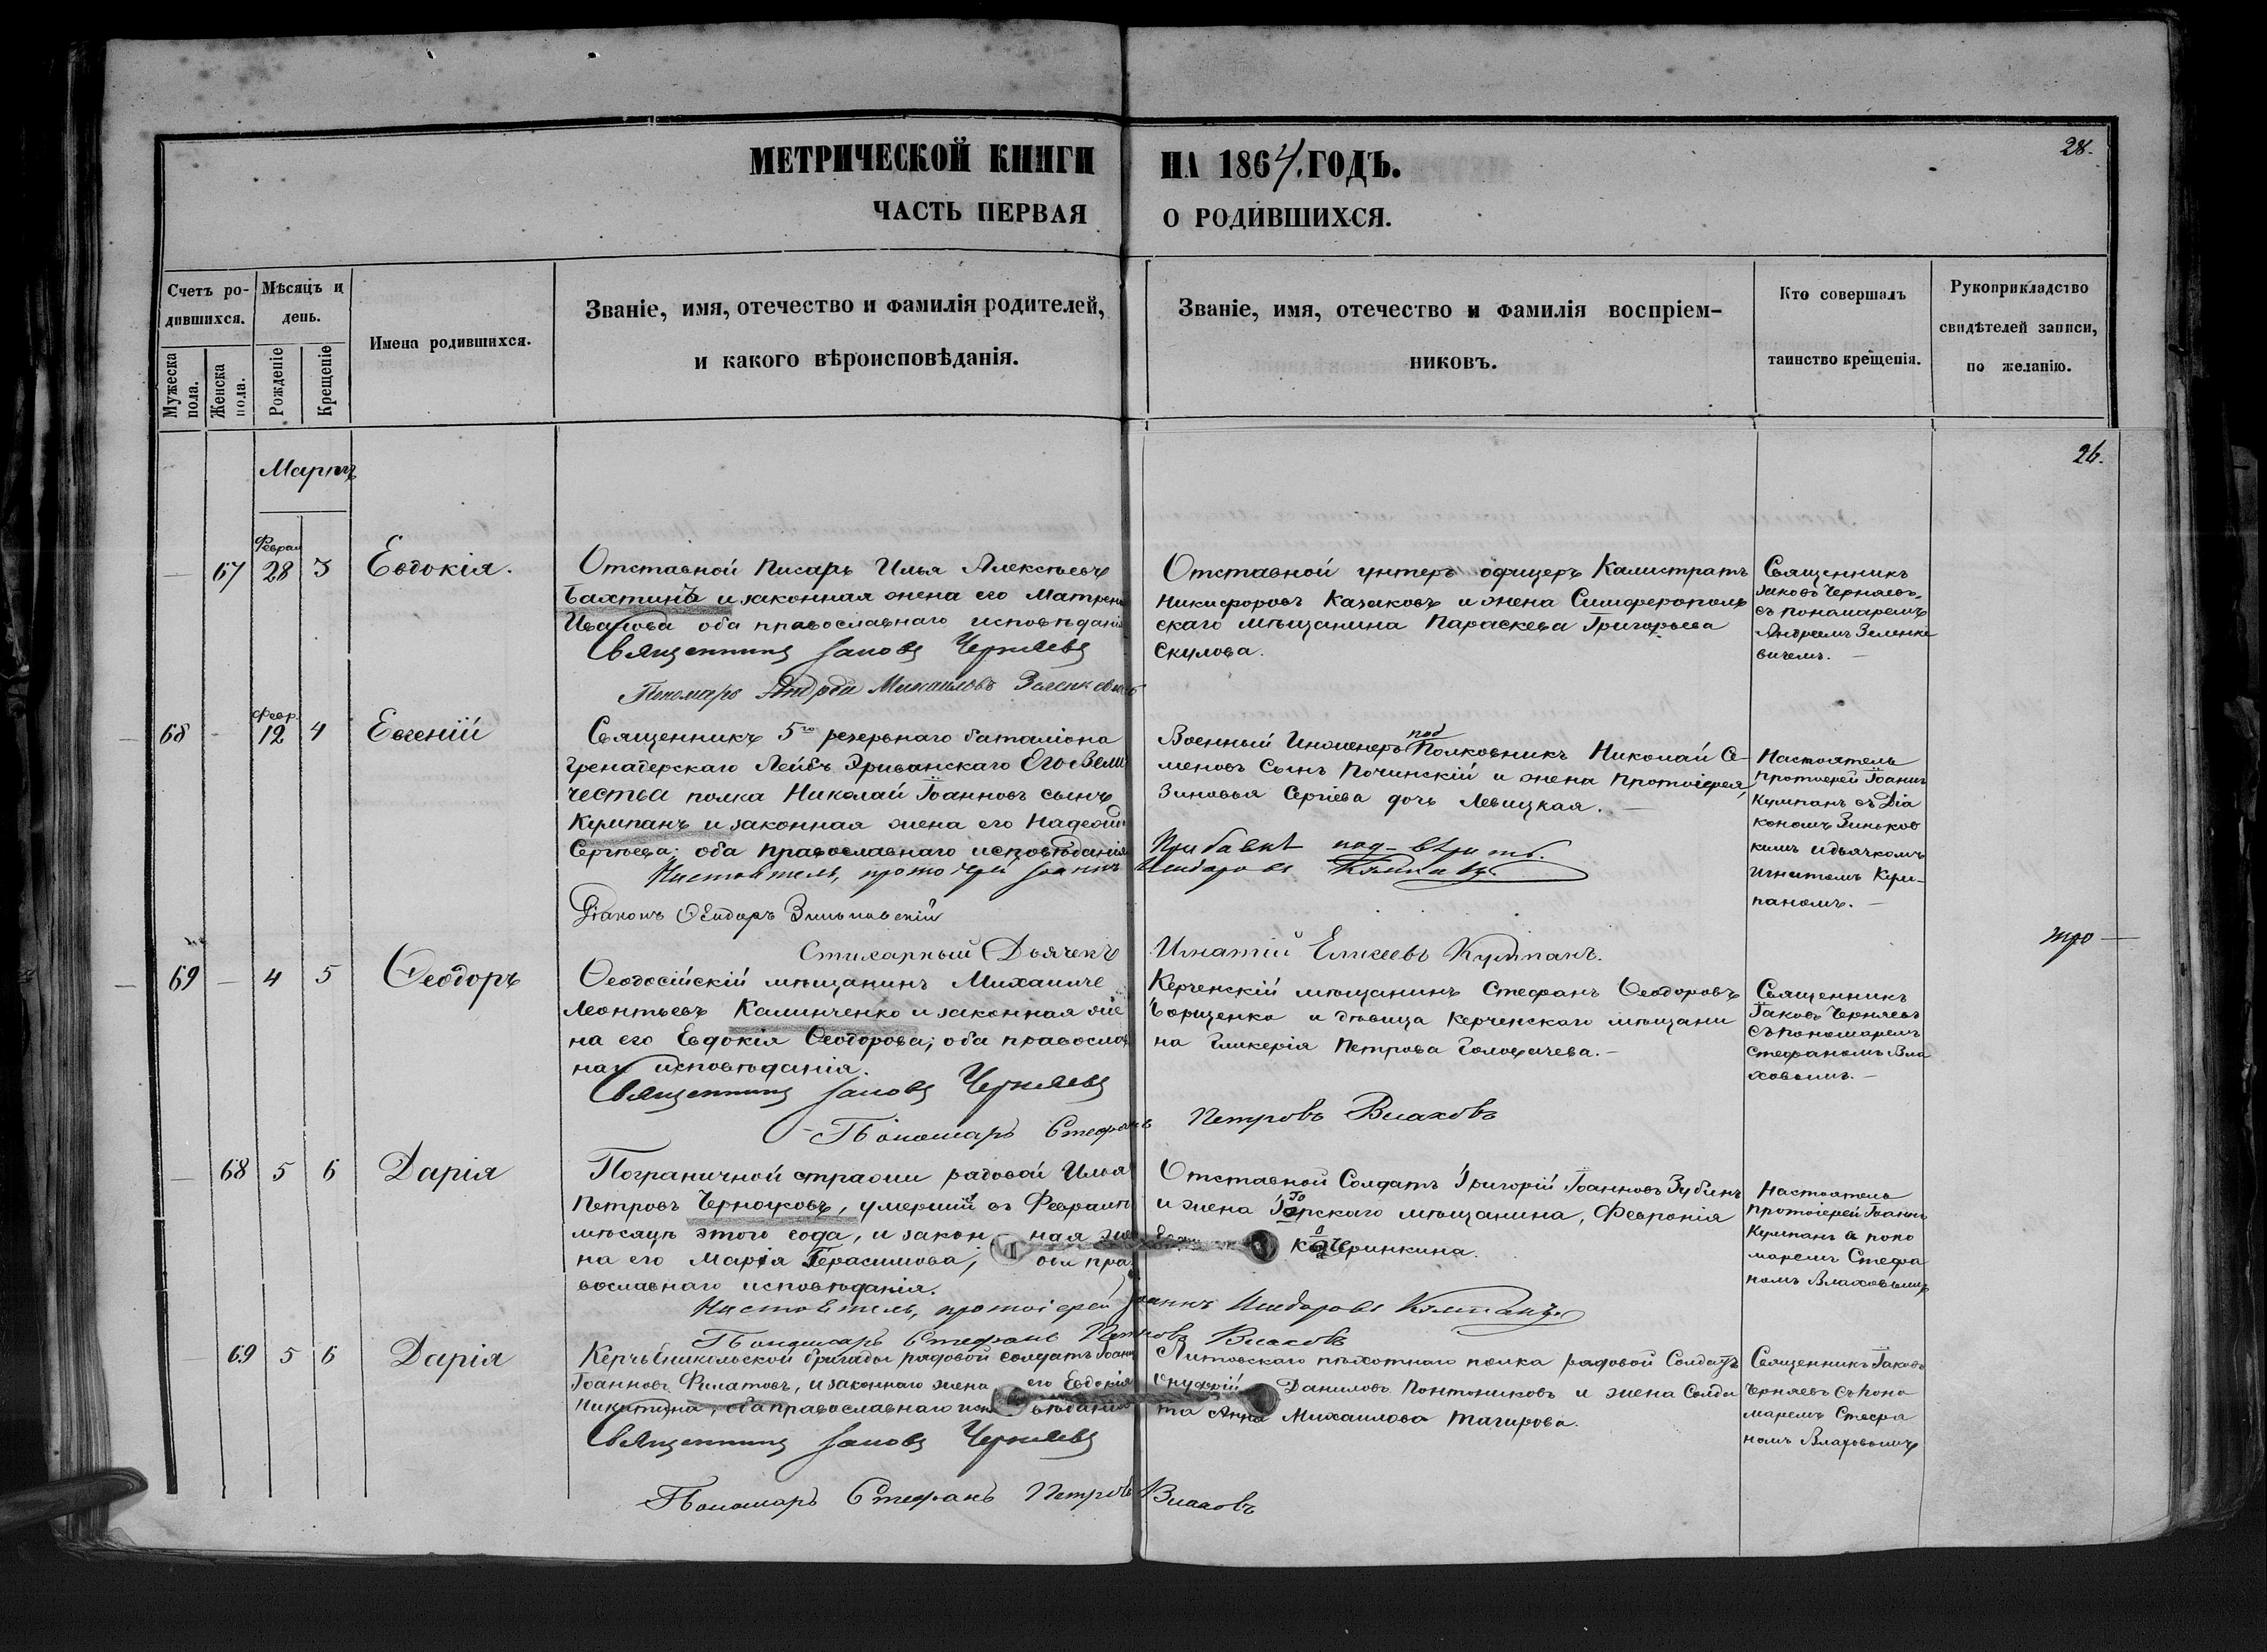 МЕТРИЧЕСКОЙ КНИГИ НА 1864. ГОДЪ.
28.
ЧАСТЬ ПЕРВАЯ О РОДИВШИХСЯ.
Счетъ ро-
дившихся.
Мужеска пола.
Женска пола.
Мѣсяцъ и
день.
Рожденіе
Крещеніе
Имена родившихся.
Званіе, имя, отечество и фамилія родителей,
и какого вѣроисповѣданія.
Званіе, имя, отечество и фамилія воспріем-
никовъ.
Кто совершалъ
таинство крещенія.
Рукоприкладство
свидѣтелей записи,
по желанію.
Мартъ
26.
67
Феврал
28 3
Евдокія.
Отставной Писарь Илья Алексѣевъ
Бахтинъ и законная жена его Матрена
Иванова оба православнаго исповѣданія
Священникъ Іаковъ Черняевъ
Пономарь Андрей Михаиловъ Зеленкевичъ
Отставной унтеръ офицеръ Калистратъ
Никифоровъ Казаковъ и жена Симферополь
скаго мѣщанина Параскева Григорьева
Скулова.
Священникъ
Іаковъ Черняевъ
съ пономаремъ
Андреемъ Зеленке
вичемъ.
68
Февр.
12 4
Евгеній
Священникъ 5го резервнаго баталіона
гренадерскаго Лейбъ Эриванскаго Его Вели
чества полка Николай Іоанновъ сынъ
Кумпанъ и законная жена его Надежда
Сергѣева; оба православнаго исповѣданія
Настоятель, протоіерей Іоаннъ Исидоровъ Кумпанъ
Діаконъ Ѳеодоръ Зиньковскій
Стихарный Дьячекъ Игнатій Елисеевъ Кумпанъ.
Военный Инженеръ под Полковникъ Николай Се-
меновъ Сынъ Починскій и жена Протоіерея,
Зиновья Сергіева дочь Левицкая.
под-
Настоятель
Протоіерей Іоаннъ
Кумпанъ съ Діа
кономъ Зиньков
кимъ и дьячкомъ
Игнатомъ Кум-
паномъ.
69 4 5
Ѳеодоръ
Ѳеодосійскій мѣщанинъ
Леонтьевъ Калинченко и законная же
на его Евдокія Ѳеодорова; оба православ
наг исповѣданія.
Священникъ Іаковъ Черняевъ
Пономарь Стефанъ Петровъ Влаховъ
Керченскій мѣщанинъ Стефанъ Ѳеодоровъ
Борщенко и дѣвица Керченскаго мѣщани
на Гликерія Петрова
Священникъ
Іаковъ Черняевъ
съ пономаремъ
Стефаномъ Вла
ховымъ.
68 5 6
Дарія
Пограничной стражи рядовой Илья
Петровъ Черноуковъ, умершій въ Февралѣ
мѣсяцѣ этого года, и закон ная же
на его Марія Герасимова; оба пра
вославнаго исповѣданія.
Настоятель, протоіерей Іоаннъ Исидоровъ Кумпанъ
Пономарь Стефанъ Петровъ Влаховъ
Отставной Солдатъ Григорій Іоанновъ Зубинъ
и жена мѣщанина, Февронія
Настоятель
Протоіерей Іоаннъ
Кумпанъ с поно
маремъ Стефа
номъ Влаховымъ
69 5 6
Дарія
Керчь Еникольской бригады рядовой солдатъ Іоаннъ
Іоанновъ Филатовъ, и законнаго жена его Евдокія
Никитина, оба православнаго исповѣданія
Священникъ Іаковъ Черняевъ
Пономарь Стефанъ Петровъ Влаховъ
Литовскаго пѣхотнаго полка рядовой Солдатъ
Онуфрій Даниловъ Понтониковъ и жена Солда
та Анна Михаилова Тагирова.
Священникъ Іаковъ
Черняевъ съ Поно
маремъ Стефа
номъ Влаховымъ